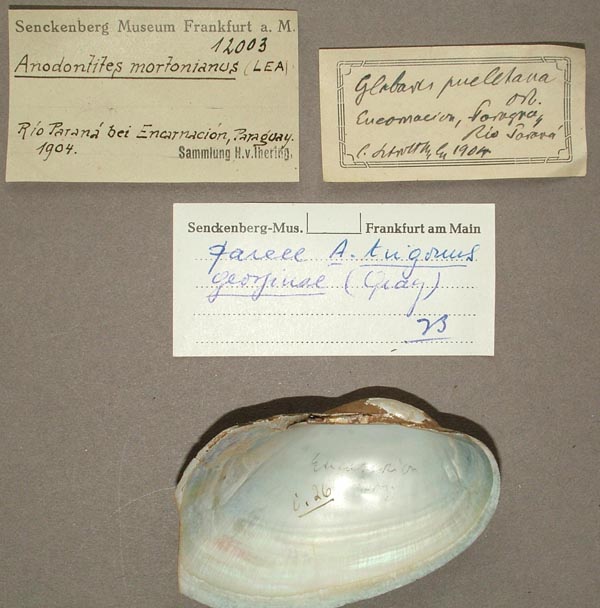 Senckenberg Museum Frankfurt a. M.
12003
Anodontites mortonianus (LEA)
Río Paraná bei Encarnación, Paraguay.
1904.
Sammlung H. v. Ihering.
Glabaris puelchana
Orb.
Encarnacion, Paraguay,
Rio Paraná
1904
Senckenberg-Mus. Frankfurt am Main
A. trigonus
georginae (Gray)
Encarnacion
i. 26